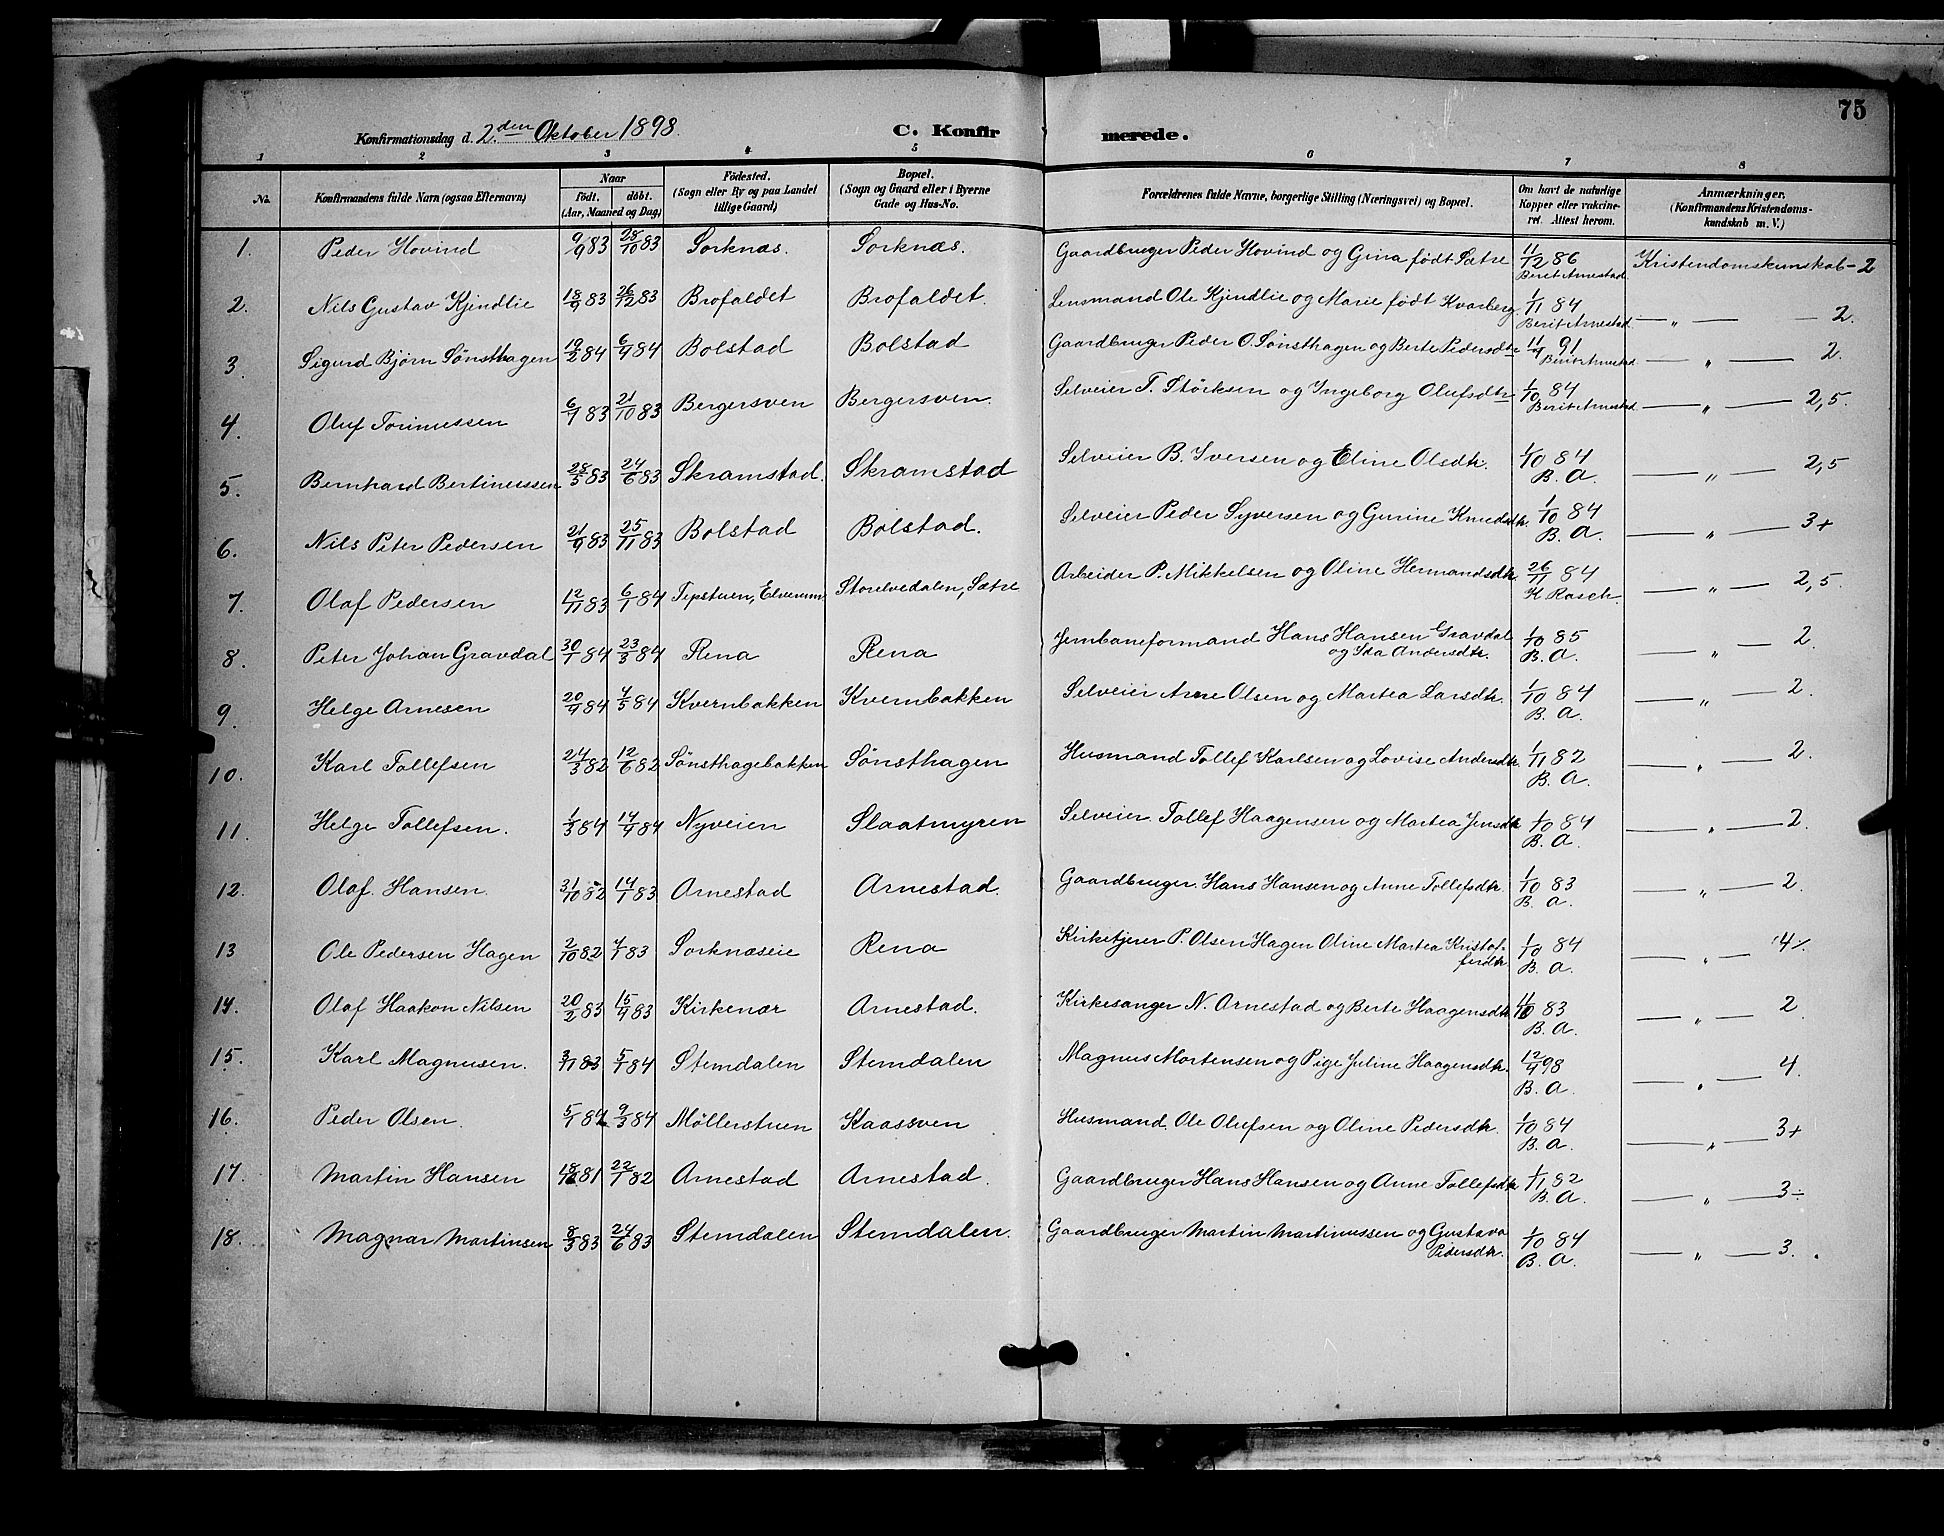 75
Konfirmationsdag d. 2.den Oktober 1898. C. Konfirmerede.
1 2 3 4 5 6 7 8
No. Konfirmandens fulde Navn (ogsaa Efternavn) Naar født. døbt. (Aar, Maaned og Dag) Fødested. (Sogn eller By og paa Landet tillige Gaard) Bopæl. (Sogn og Gaard eller i Byerne Gade og Hus-No. Forældrenes fulde Navne, borgerlige Stilling (Næringsvei) og Bopæl. Om havt de naturlige Kopper eller vakcineret. Attest herom. Anmærkninger, (Konfirmandens Kristendomskundskab m. V.)
1. Peder Hovind 9/9 83 28/10 83 Sorknæs. Sorknæs. Gaardbruger Peder Hovind og Gina født Sætre 11/12 86 Berit Arnestad Kristendomskunskab - 2
2. Nils Gustav Kjendlie 18/9 83 26/12 83 Brofaldet Brofaldet. Lensmand Ole Kjendlie og Marie født Kvarberg 1/11 84 Berit Arnestad — " — 2.
3. Sigurd Bjørn Sønsthagen 19/2 84 6/4 84 Bolstad Bolstad Gaardbruger Peder O. Sønsthagen og Berte Pedersdtr 11/9 91 Berit Arnestad — " — 2.
4. Oluf Torinussen 6/7 83 21/10 83 Bergersven Bergersven. Selveier T. Størksen og Ingeborg Olufsdtr 1/10 84 Berit Arnestad — " — 2,5.
5. Bernhard Bertinussen 28/5 83 24/6 83 Skramstad. Skramstad Selveier B. Iversen og Eline Olsdtr. 1/10 84 B. A. — " — 2,5
6. Nils Peter Pedersen 21/9 83 25/11 83 Bolstad Bolstad. Selveier Peder Syversen og Gunine Knudsdtr. 1/10 84 B. A. — " — 3+
7. Olaf Pedersen 12/11 83 6/1 84 Tepstuen, Elverum Storelvedalen, Sætre Arbeider P. Mikkelsen og Oline Hermandsdtr. 26/11 84 K Rasch. — " — 2,5.
8. Peter Johan Gravdal 30/1 84 23/3 84 Rena Rena Jernbaneformand Hans Hansen Gravdal og Ida Andersdtr. 1/10 85 B. A. — " — 2.
9. Helge Arnesen 20/4 84 4/5 84 Kvernbakken Kvernbakken Selveier Arne Olsen og Martea Larsdtr. 1/10 84 B. A. — " — 2.
10. Karl Tollefsen 24/3 82 12/6 82 Sønsthagebakken Sønsthagen Husmand Tollef Karlsen og Lovise Andersdtr 1/11 82 B. A. — " — 2.
11. Helge Tollefsen. 1/3 84 14/4 84 Nyveien Slaatmyren Selveier Tollef Haagensen og Martea Jensdtr 1/10 84 B. A. — " — 2.
12. Olaf. Hansen. 31/10 82 14/1 83 Arnestad Arnestad. Gaardbruger. Hans Hansen og Anne Tollefsdtr. 1/10 83 B. A. — " — 2.
13 Ole Pedersen Hagen 2/10 82 7/1 83 Sorknæseie Rena Kirketjener P. Olsen Hagen Oline Martea Kristoffersdtr. 1/10 84 B. A. — " — 4
14. Olaf Haakon Nilsen 20/2 83 15/4 83 Kirkenær Arnestad. Kirkesanger N. Arnestad og Berte Haagensdtr 83 B. A. — " — 2.
15. Karl Magnusen. 3/11 83 5/1 84 Stemdalen Stemdalen Magnus Mortensen og Pige Juline Haagensdtr. 12/9 98 B. A. — " — 4.
16. Peder Olsen. 5/1 84 9/3 84 Møllerstuen Kaassven Husmand Ole Olufsen og Oline Pedersdtr. 1/10 84 B. A. — " — 3+
17. Martin Hansen 81 22/1 82 Arnestad Arnestad. Gaardbruger Hans Hansen og Anne Tollefsdtr 1/11 82 B. A. — " — 3÷
18. Magnar Martinsen 8/3 83 24/6 83 Stemdalen Stemdalen. Gaardbruger Martin Martinussen og Gustava Pedersdtr. 1/10 84 B. A. — " — 3.